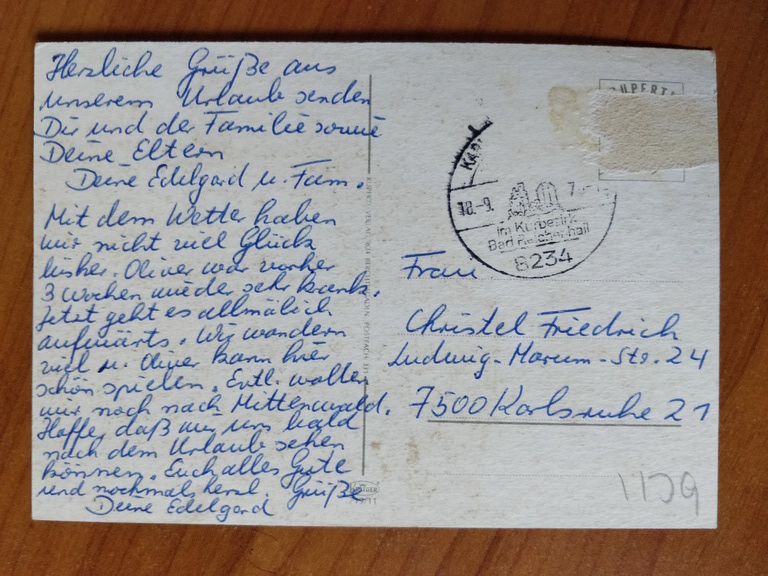 Herzliche Grüße aus
unserem Urlaub senden
Dir und der Familie sowie
Deine Eltern
Deine Edelgard u. Fam.
Mit dem Wetter haben
wir nicht viel Glück
bisher. Oliver war vorher
3 Wochen wieder sehr krank.
Jetzt geht es allmälich
aufwärts. Wir wandern
viel u. Oliver kann hier
schön spielen. Evtl. wollen
wir noch nach Mittenwald.
Hoffe, daß wir uns bald
nach dem Urlaub sehen
können. Euch alles Gute
und nochmals herzl. Grüße
Deine Edelgard
RUPERT
18.-9. 7
im Kurbezirk
Bad Reichenhall
8234
Frau
Christel Friedrich
Ludwig-Marum-Str. 24
7500 Karlsruhe 21